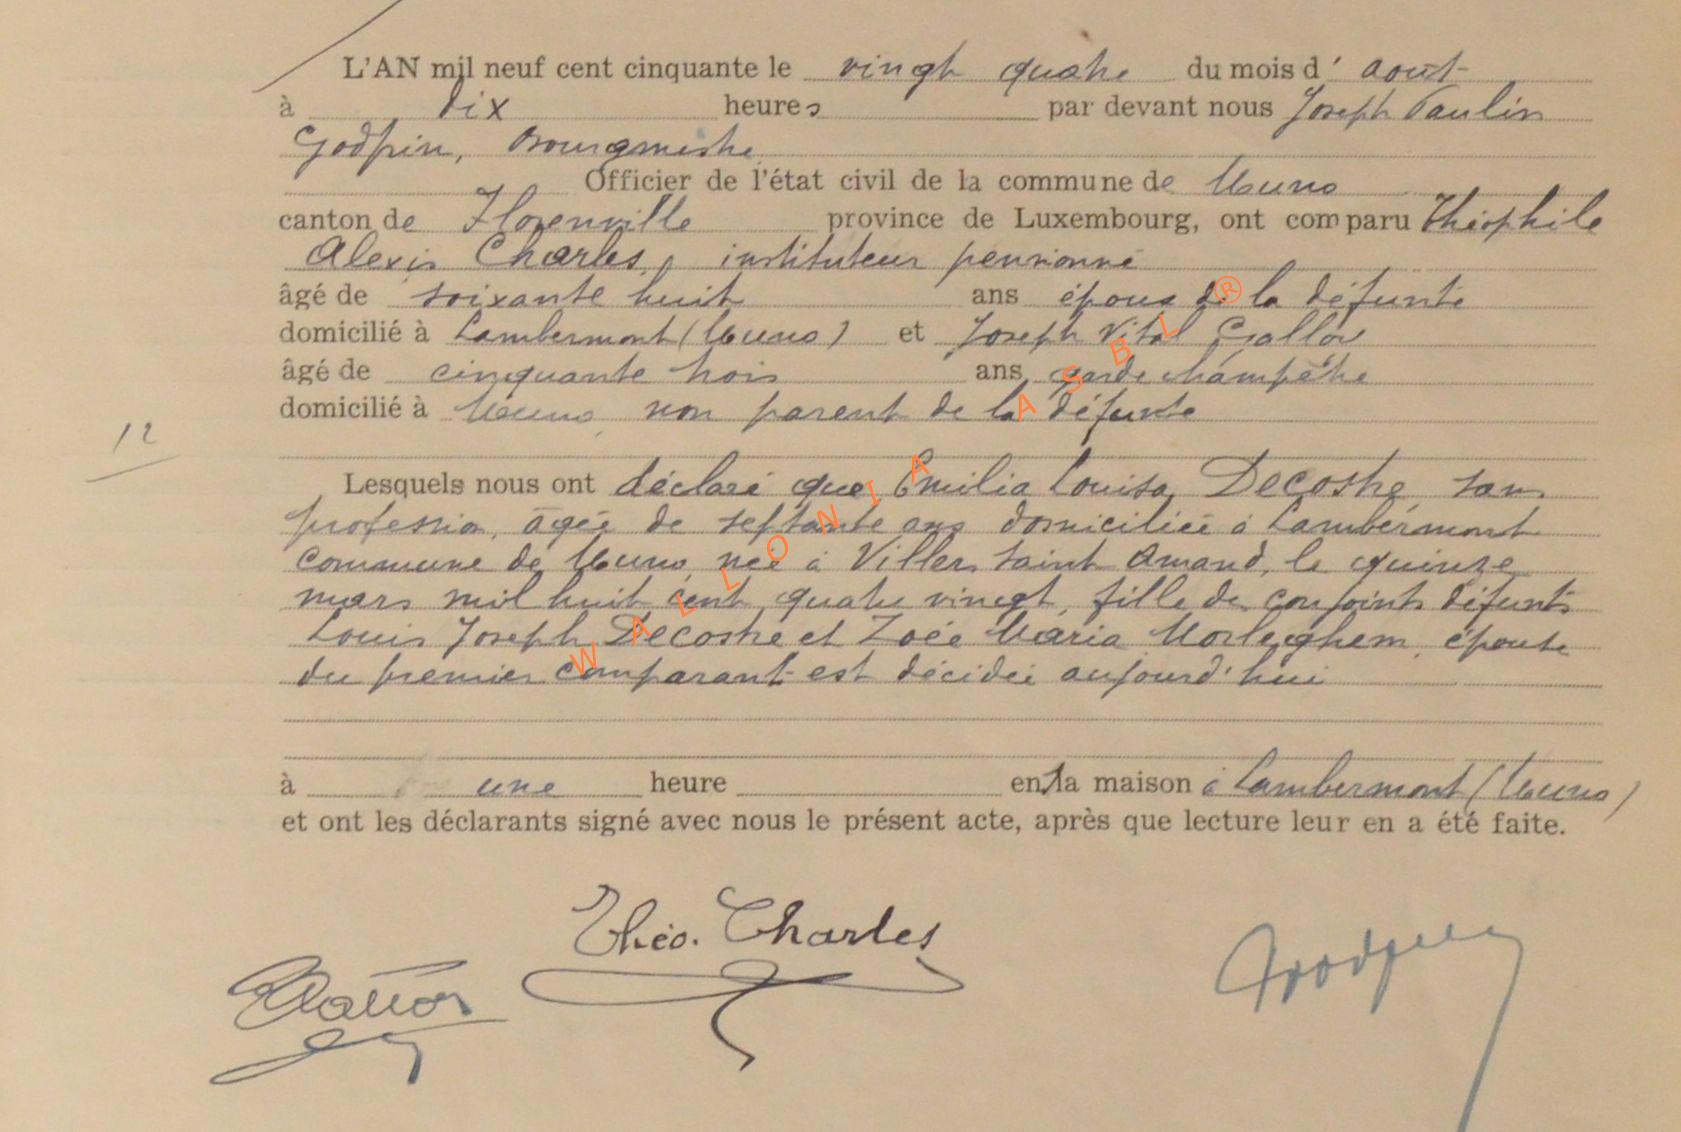 L'AN mil neuf cent cinquante le vingt quatre du mois d' août
à dix heures par devant nous Joseph Paulin
Godfrin, Bourgmestre
Officier de l'état civil de la commune de Muno
canton de Florenville province de Luxembourg, ont comparu Théophile
Alexis Charles, instituteur pensionné
âgé de soixante huit ans époux de la défunte
domicilié à Lambermont (Muno) et Joseph Vital Gallos
âgé de cinquante trois ans garde champêtre
domicilié à Muno, non parent de la défunte
12
Lesquels nous ont déclaré que Emilia Louisa Decostre sans
profession, âgée de septante ans domiciliée à Lambermont
commune de Muno, née à Villers Saint Amand, le quinze
mars mil huit cent quatre vingt, fille des conjoints défunts
Louis Joseph Decostre et Zoée Maria Morleghem, épouse
du premier comparant est décédée aujourd'hui
à une heure en la maison à Lambermont (Muno)
et ont les déclarants signé avec nous le présent acte, après que lecture leur en a été faite.
Théo. Charles
Godfrin
WALLONIA ASBL ®